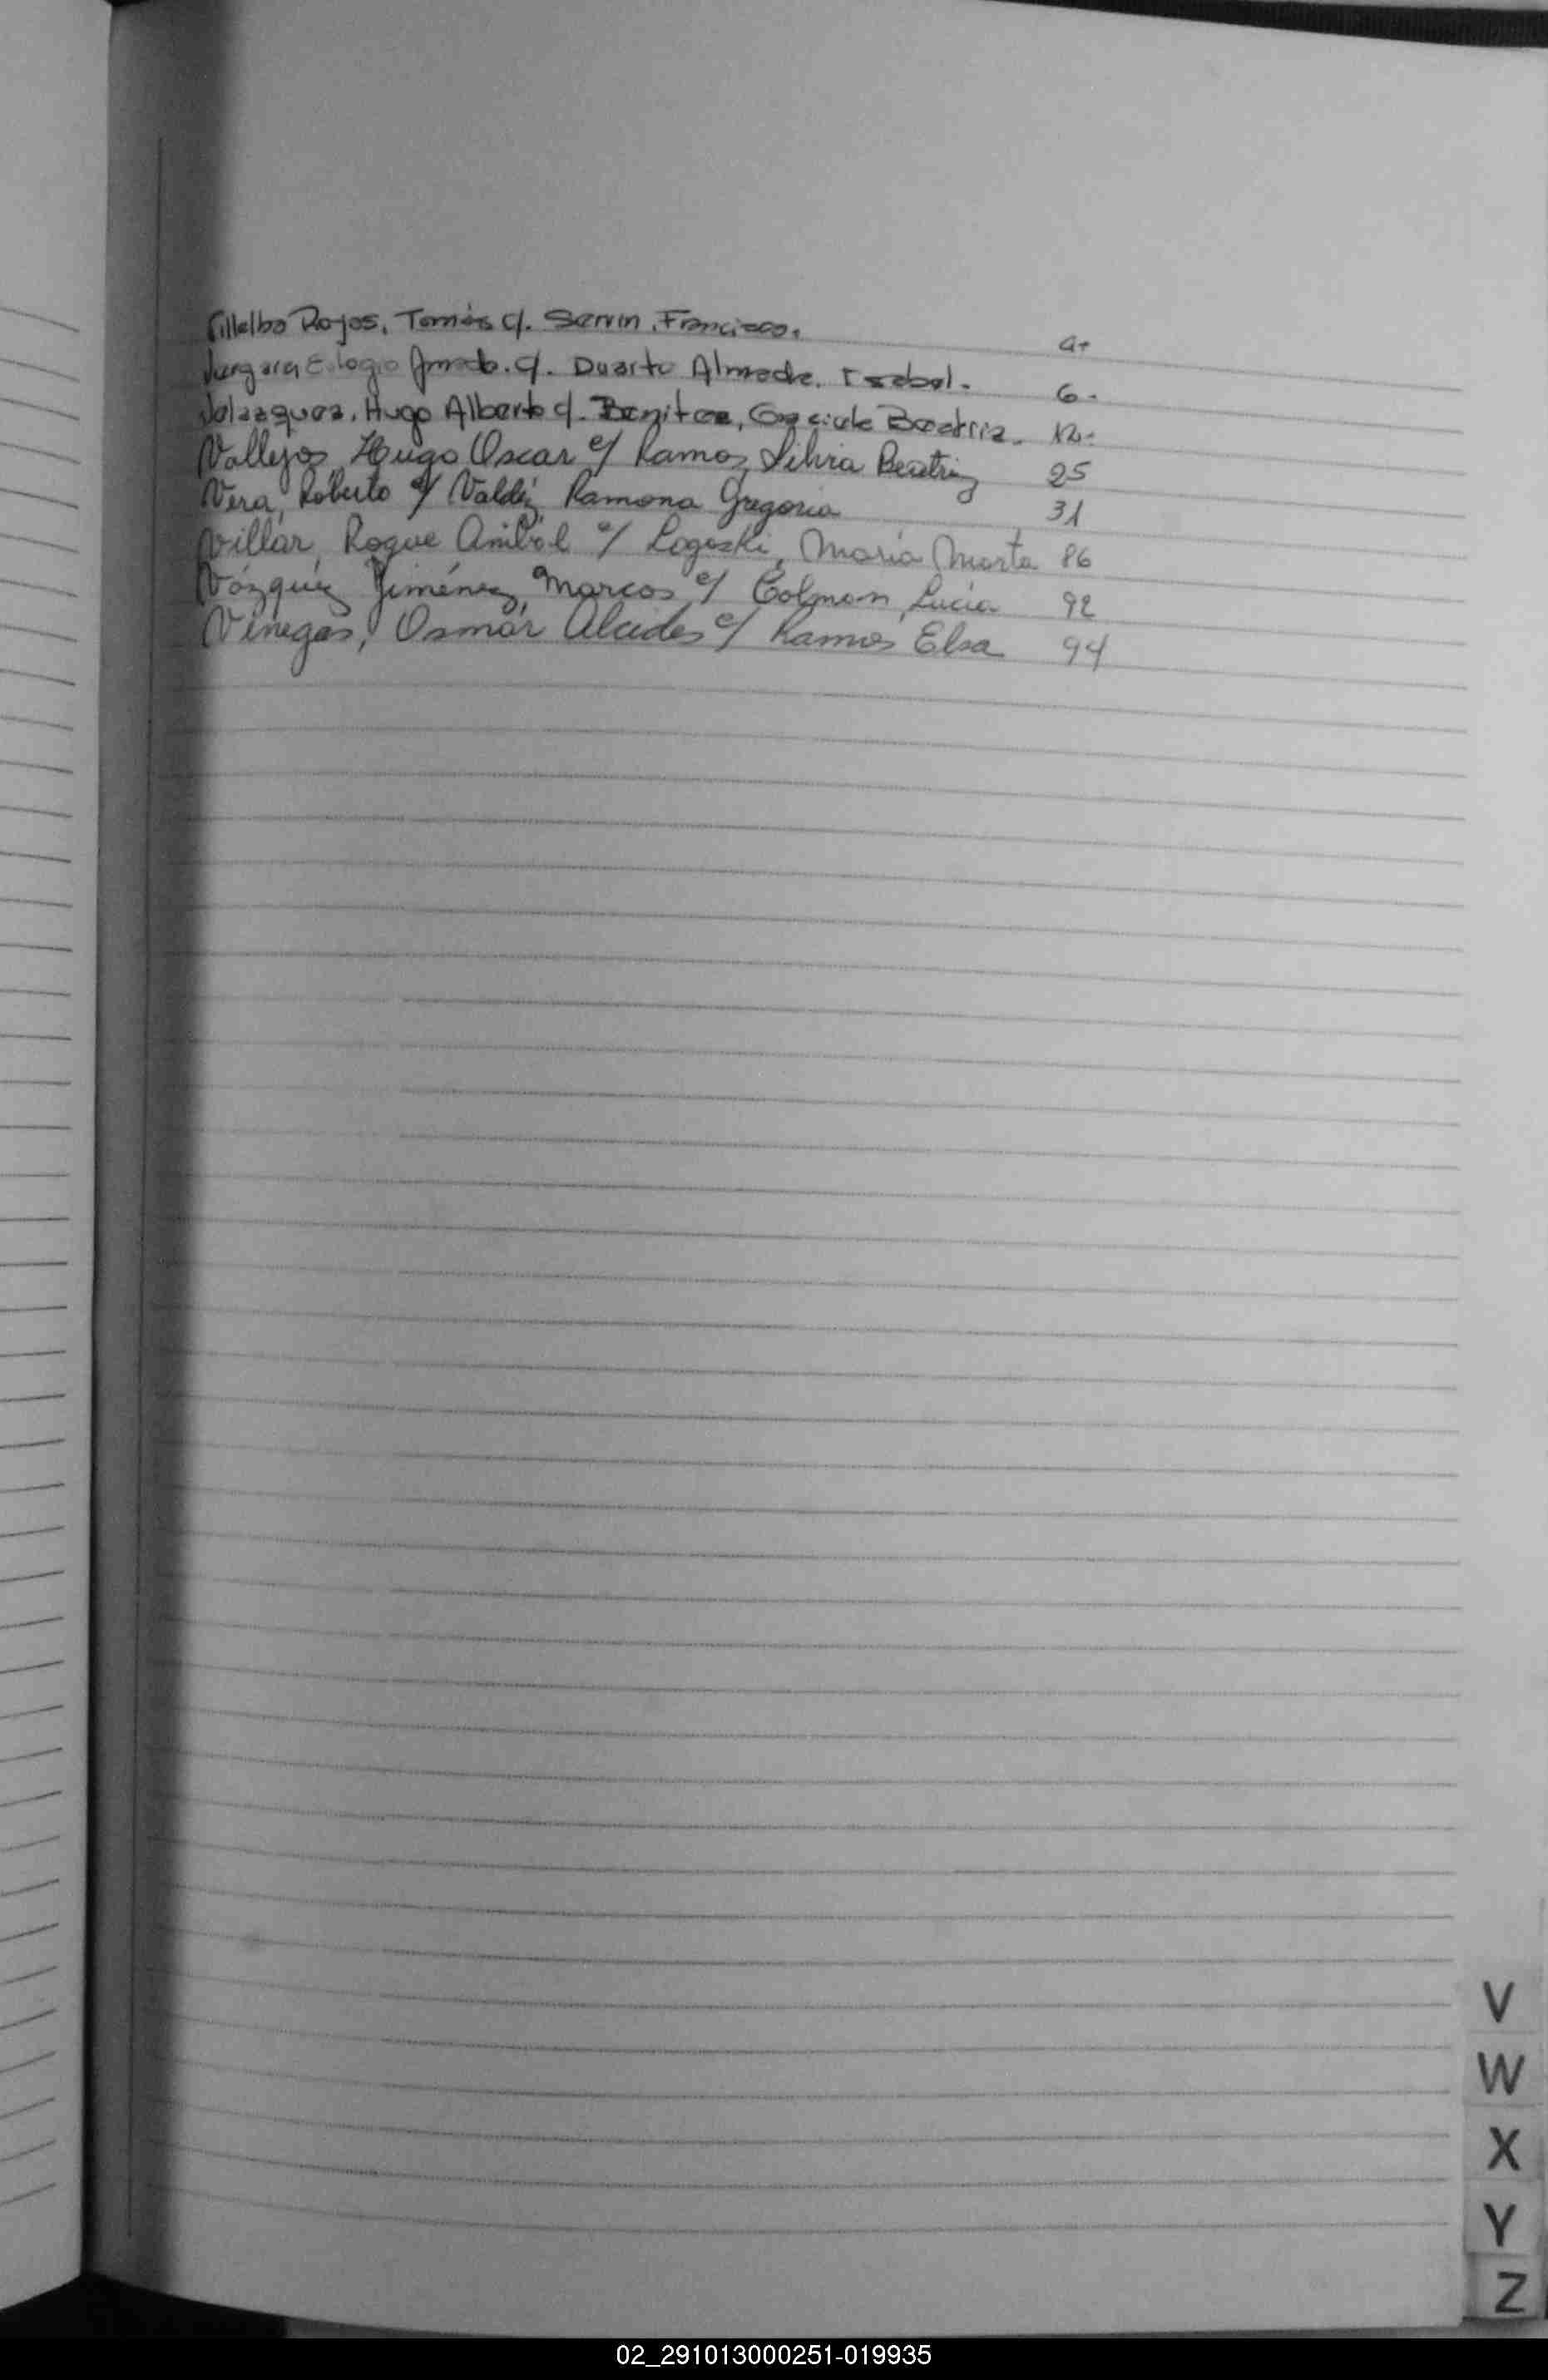 Villalba Rojas, Tomás c/. Servin, Francisca.
Vergara Eulogio Amado. c/. Duarte Almada. Isabel. 6-
Velazquez. Hugo Alberto c/. Benitez, Graciela Beatriz. 12-
Vallejos, Hugo Oscar c/ Ramoz, Silvia Beatriz 25
Vera, Roberto c/ Valdéz, Ramona Gregoria 31
Villar, Roque Anibal c/ Logoski, María Marta 86
Vázquez Jiménez, Marcos c/ Colman, Lucia 92
Venegas, Osmar Alcides c/ Ramos Elsa 94
V
W
X
Y
Z
02_291013000251-019935